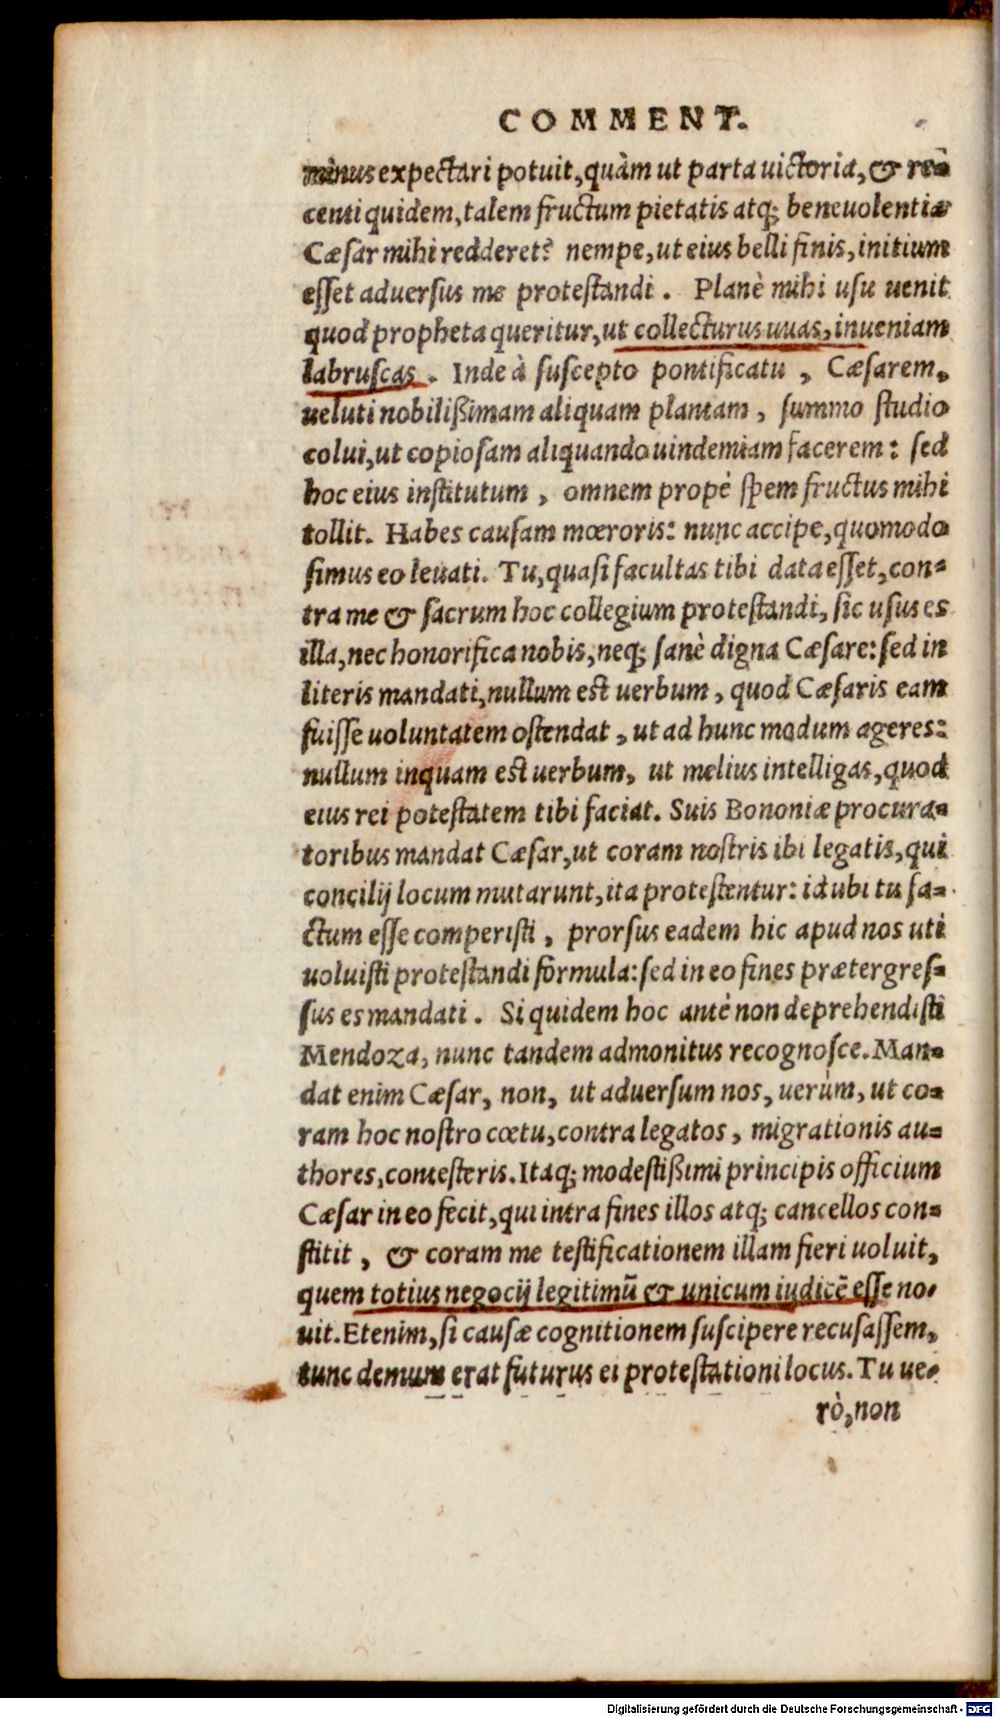 COMMENT.
minus expectari potuit, quàm ut parta uictoria, & re=
centi quidem, talem fructum pietatis atq; beneuolentiæ
Cæsar mihi redderet? nempe, ut eius belli finis, initium
esset aduersus me protestandi. Planè mihi usu uenit
quod propheta queritur, ut collecturus uuas, inueniam
labruscas. Inde à suscepto pontificatu, Cæsarem,
ueluti nobilißimam aliquam plantam, summo studio
colui, ut copiosam aliquando uindemiam facerem: sed
hoc eius institutum, omnem propè spem fructus mihi
tollit. Habes causam mœroris: nunc accipe, quomodo
simus eo leuati. Tu, quasi facultas tibi data esset, con=
tra me & sacrum hoc collegium protestandi, sic usus es
illa, nec honorifica nobis, neq; sanè digna Cæsare: sed in
literis mandati, nullum est uerbum, quod Cæsaris eam
fuisse uoluntatem ostendat, ut ad hunc modum ageres:
nullum inquam est uerbum, ut melius intelligas, quod
eius rei potestatem tibi faciat. Suis Bononiæ procura=
toribus mandat Cæsar, ut coram nostris ibi legatis, qui
concilij locum mutarunt, ita protestentur: id ubi tu fa=
ctum esse comperisti, prorsus eadem hic apud nos uti
uoluisti protestandi formula: sed in eo fines prætergres=
sus es mandati. Si quidem hoc antè non deprehendisti
Mendoza, nunc tandem admonitus recognosce. Man=
dat enim Cæsar, non, ut aduersum nos, uerùm, ut co=
ram hoc nostro cœtu, contra legatos, migrationis au=
thores, contesteris. Itaq; modestißimi principis officium
Cæsar in eo fecit, qui intra fines illos atq; cancellos con=
stitit, & coram me testificationem illam fieri uoluit,
quem totius negocij legitimũ & unicum iudicẽ esse no=
uit. Etenim, si causæ cognitionem suscipere recusassem,
tunc demum erat futurus ei protestationi locus. Tu ue=
rò, non
Digitalisierung gefördert durch die Deutsche Forschungsgemeinschaft - DFG